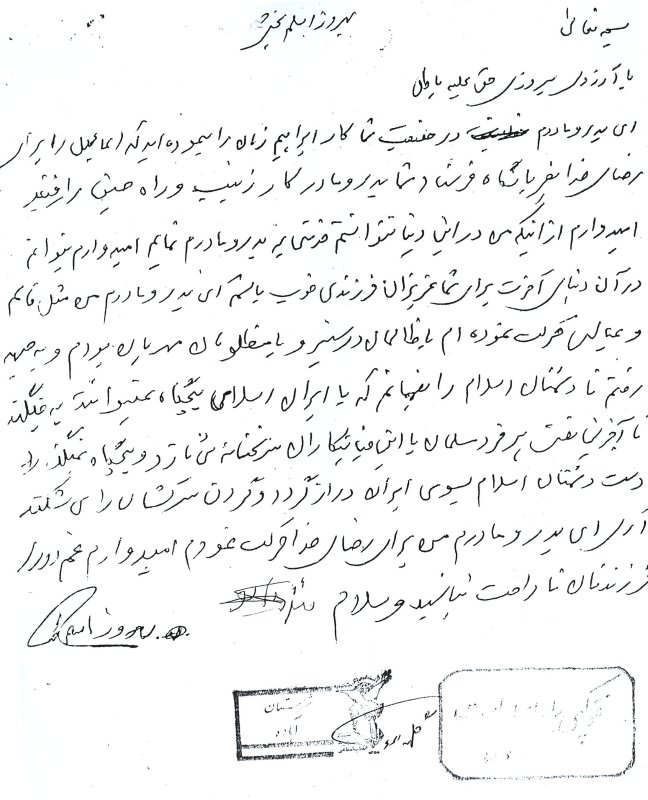 بسمه تعالی
بهروز اسلم بخش
با آرزوی پیروزی حق علیه باطل
ای پدر و مادرم در حقیقت شما کار ابراهیم زمان را نموده اید که اسماعیل را برای
رضای خدا بقربانگاه فرستاد شما پدر و مادر کار زینب و راه حسین را رفتید
امیدوارم از اینکه من در این دنیا نتوانستم خدمتی به پدر و مادرم نمایم امیدوارم بتوانم
در آن دنیای آخرت برای شما عزیزان فرزندی خوب باشم ای پدر و مادرم من مثل قاسم
و حرکت نموده ام با ظالمان در ستیز و با مظلومان مهربان بودم و به جبهه
رفتم تا دشمنان اسلام را بفهمانم که با ایران اسلامی هیچگاه نمیتوانند به جنگند
تا آخرین نفس هر فرد مسلمان با این جنایتکاران سرسختانه می تازد و هیچگاه نمیگذارد
دست دشمنان اسلام بسوی ایران دراز گردد و گردن سرکشان را می شکند
آری ای پدر و مادرم من برای رضای خدا حرکت نمودم امیدوارم غم دوری
فرزندتان ناراحت نباشید و سلام
بهروز
شهرستان
آباده